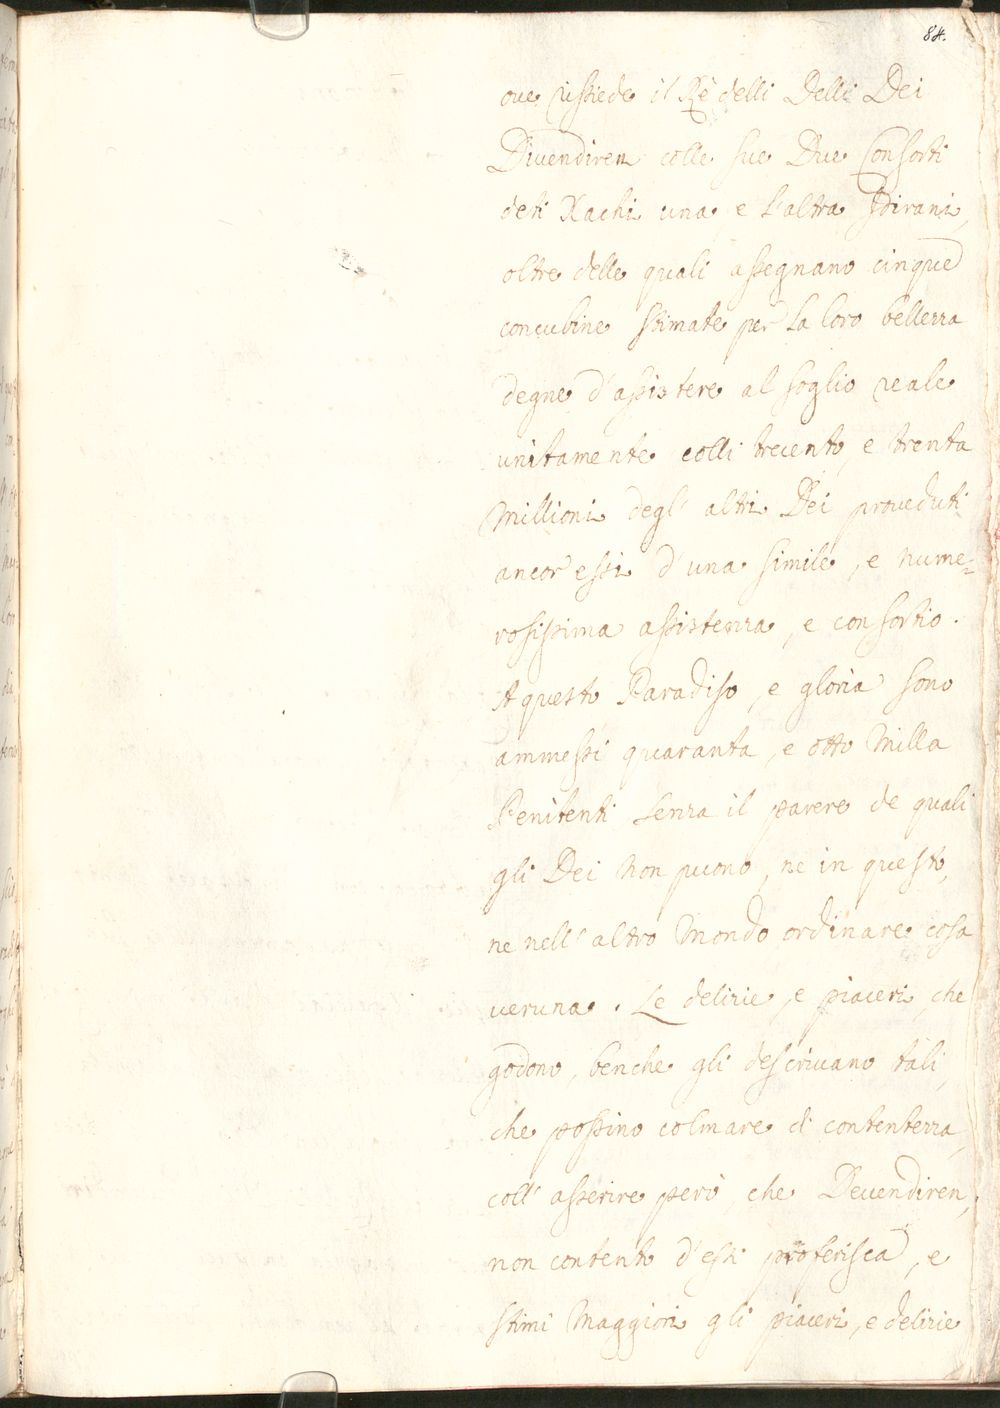 84.
oue rissiede il Rè delli Delli Dei
Diuendiren colle sue Due Consorti
deti Xachi una, e l'altra Idirani,
oltre delle quali assegnano cinque
concubine stimate per la loro bellezza
degne d'assistere al soglio reale
unitamente colli trecento, e trenta
Millioni degl' altri Dei proueduti
ancor essi d'una simile, e nume=
rosissima assistenza, e consortio.
A questo Paradiso, e gloria sono
ammessi quaranta, e otto Milla
Penitenti senza il parere de quali
gli Dei non puono, ne in questo,
ne nell' altro Mondo ordinare cosa
ueruna. Le delizie, e piaceri, che
godono, benche gli descriuano tali,
che possino colmare di contentezza,
coll' asserire però, che Deuendiren,
non contento d'essi proferisca, e
stimi Maggiori gli piaceri, e delizie